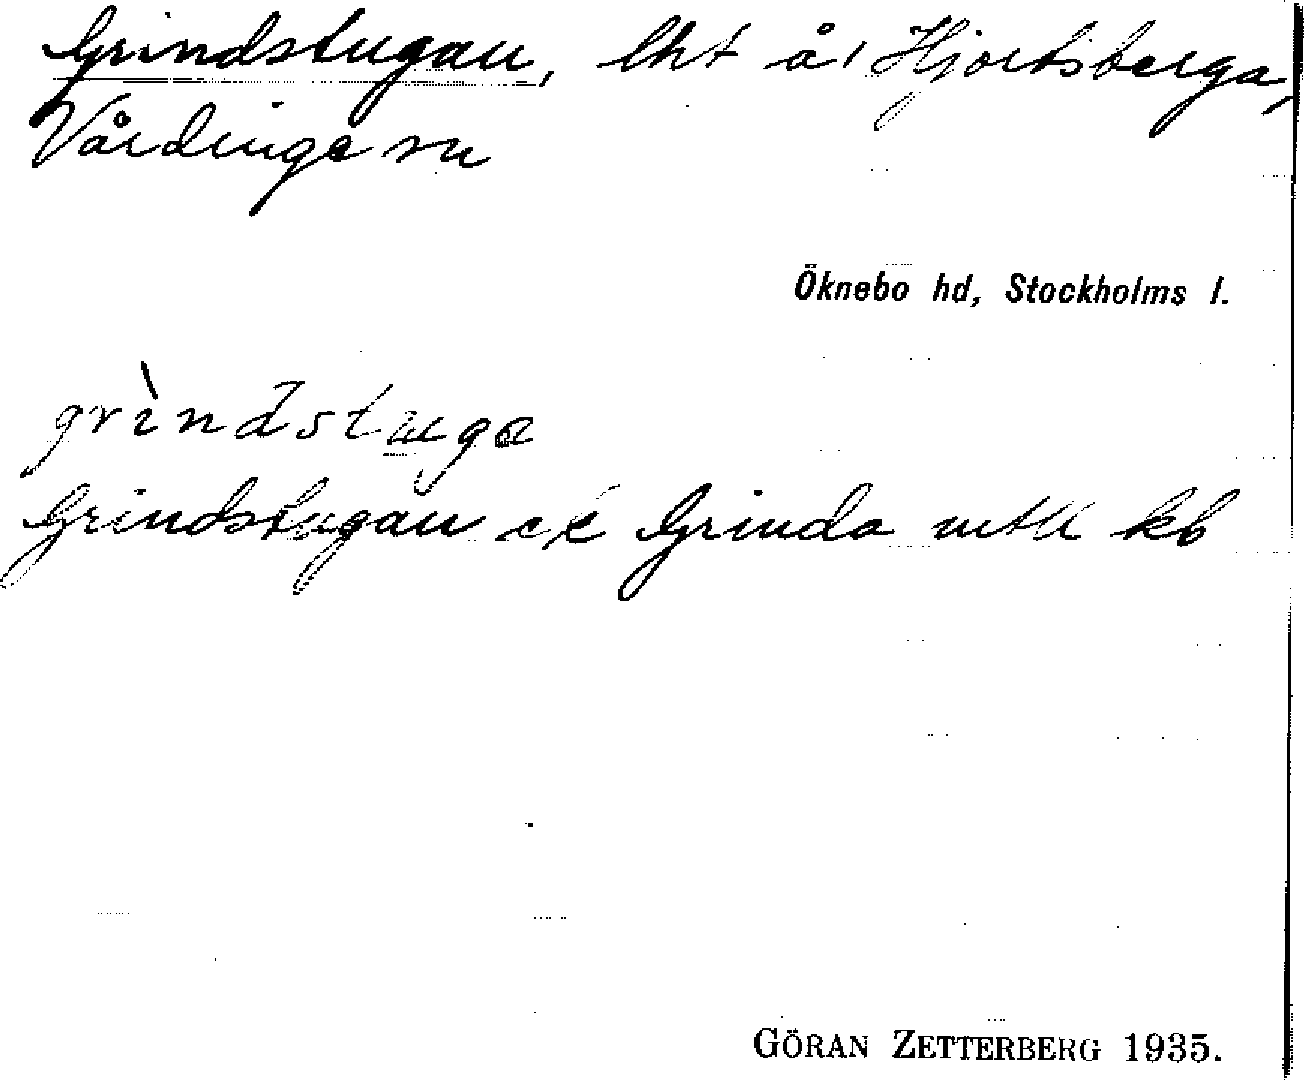 Grindstugan, lht å Hjortsberga,
Vårdinge sn
Öknebo hd, Stockholms l.
grìndstuga
Grindstugan Grinda mtl kb
GÖRAN ZETTERBERG 1935.